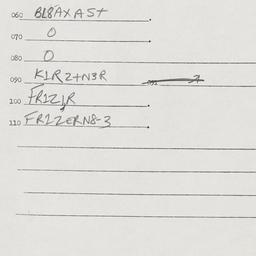 060 BL8AXASt.
070 O.
080 O
090 K1R2+N3R
100 FR1Z1R.
110 FR1ZERN8-3.